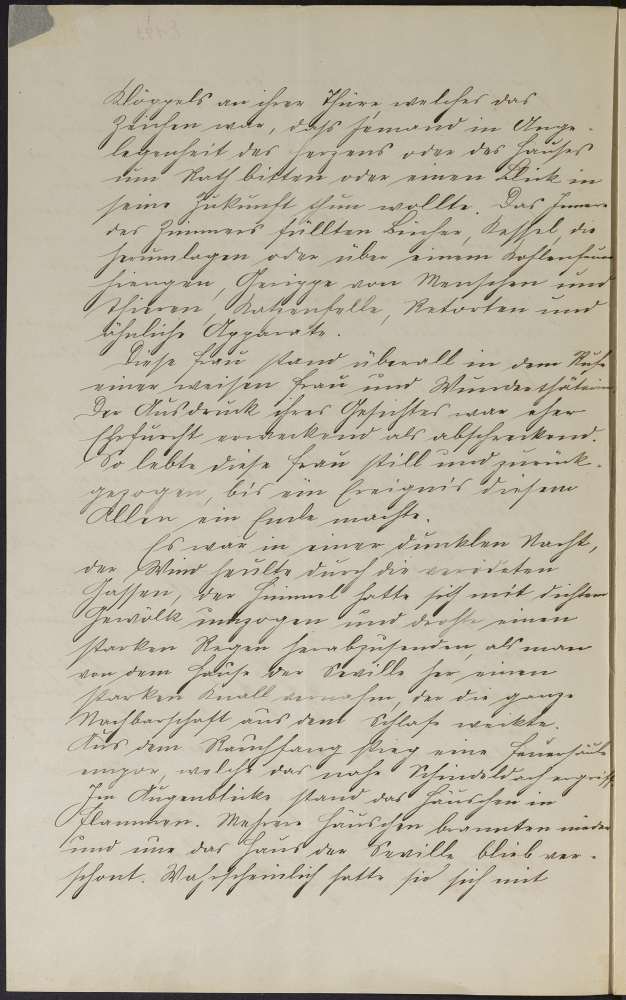 Klöppels an ihrer Thüre, welches das
Zeichen war, daß jemand in Ange-
legenheit des Herzens oder des Hauses
um Rath bitten oder einen Blick in
seine Zukunft thun wollte. Das Innere
des Zimmers füllten Bücher, Kessel, die
herumlagen oder über einem Kohlenfeuer
hiengen, Gerippe von Menschen und
Thieren, Katzenfelle, Retorten und
ähnliche Apparate.
Diese Frau stand überall in dem Rufe
einer weisen Frau und Wunderthäterin.
Der Ausdruck ihres Gesichtes war eher
Ehrfurcht erweckend als abschreckend.
So lebte diese Frau still und zurück-
gezogen, bis ein Ereignis diesem
Allen ein Ende machte.
Es war in einer dunklen Nacht,
der Wind heulte durch die verödeten
Gassen, der Himmel hatte sich mit dichtem
Gewölk umzogen und drohte einen
starken Regen herabzusenden, als man
von dem Hause der Seville her einen
starken Knall vernahm, der die ganze
Nachbarschaft aus dem Schlafe weckte.
Aus dem Rauchfang stieg eine Feuersäule
empor, welche das nahe Schindeldach ergriff.
Im Augenblicke stand das Häuschen in
Flammen. Mehrere Häuschen brannten nieder
und nur das Haus der Seville blieb ver-
schont. Wahrscheinlich hatte sie sich mit